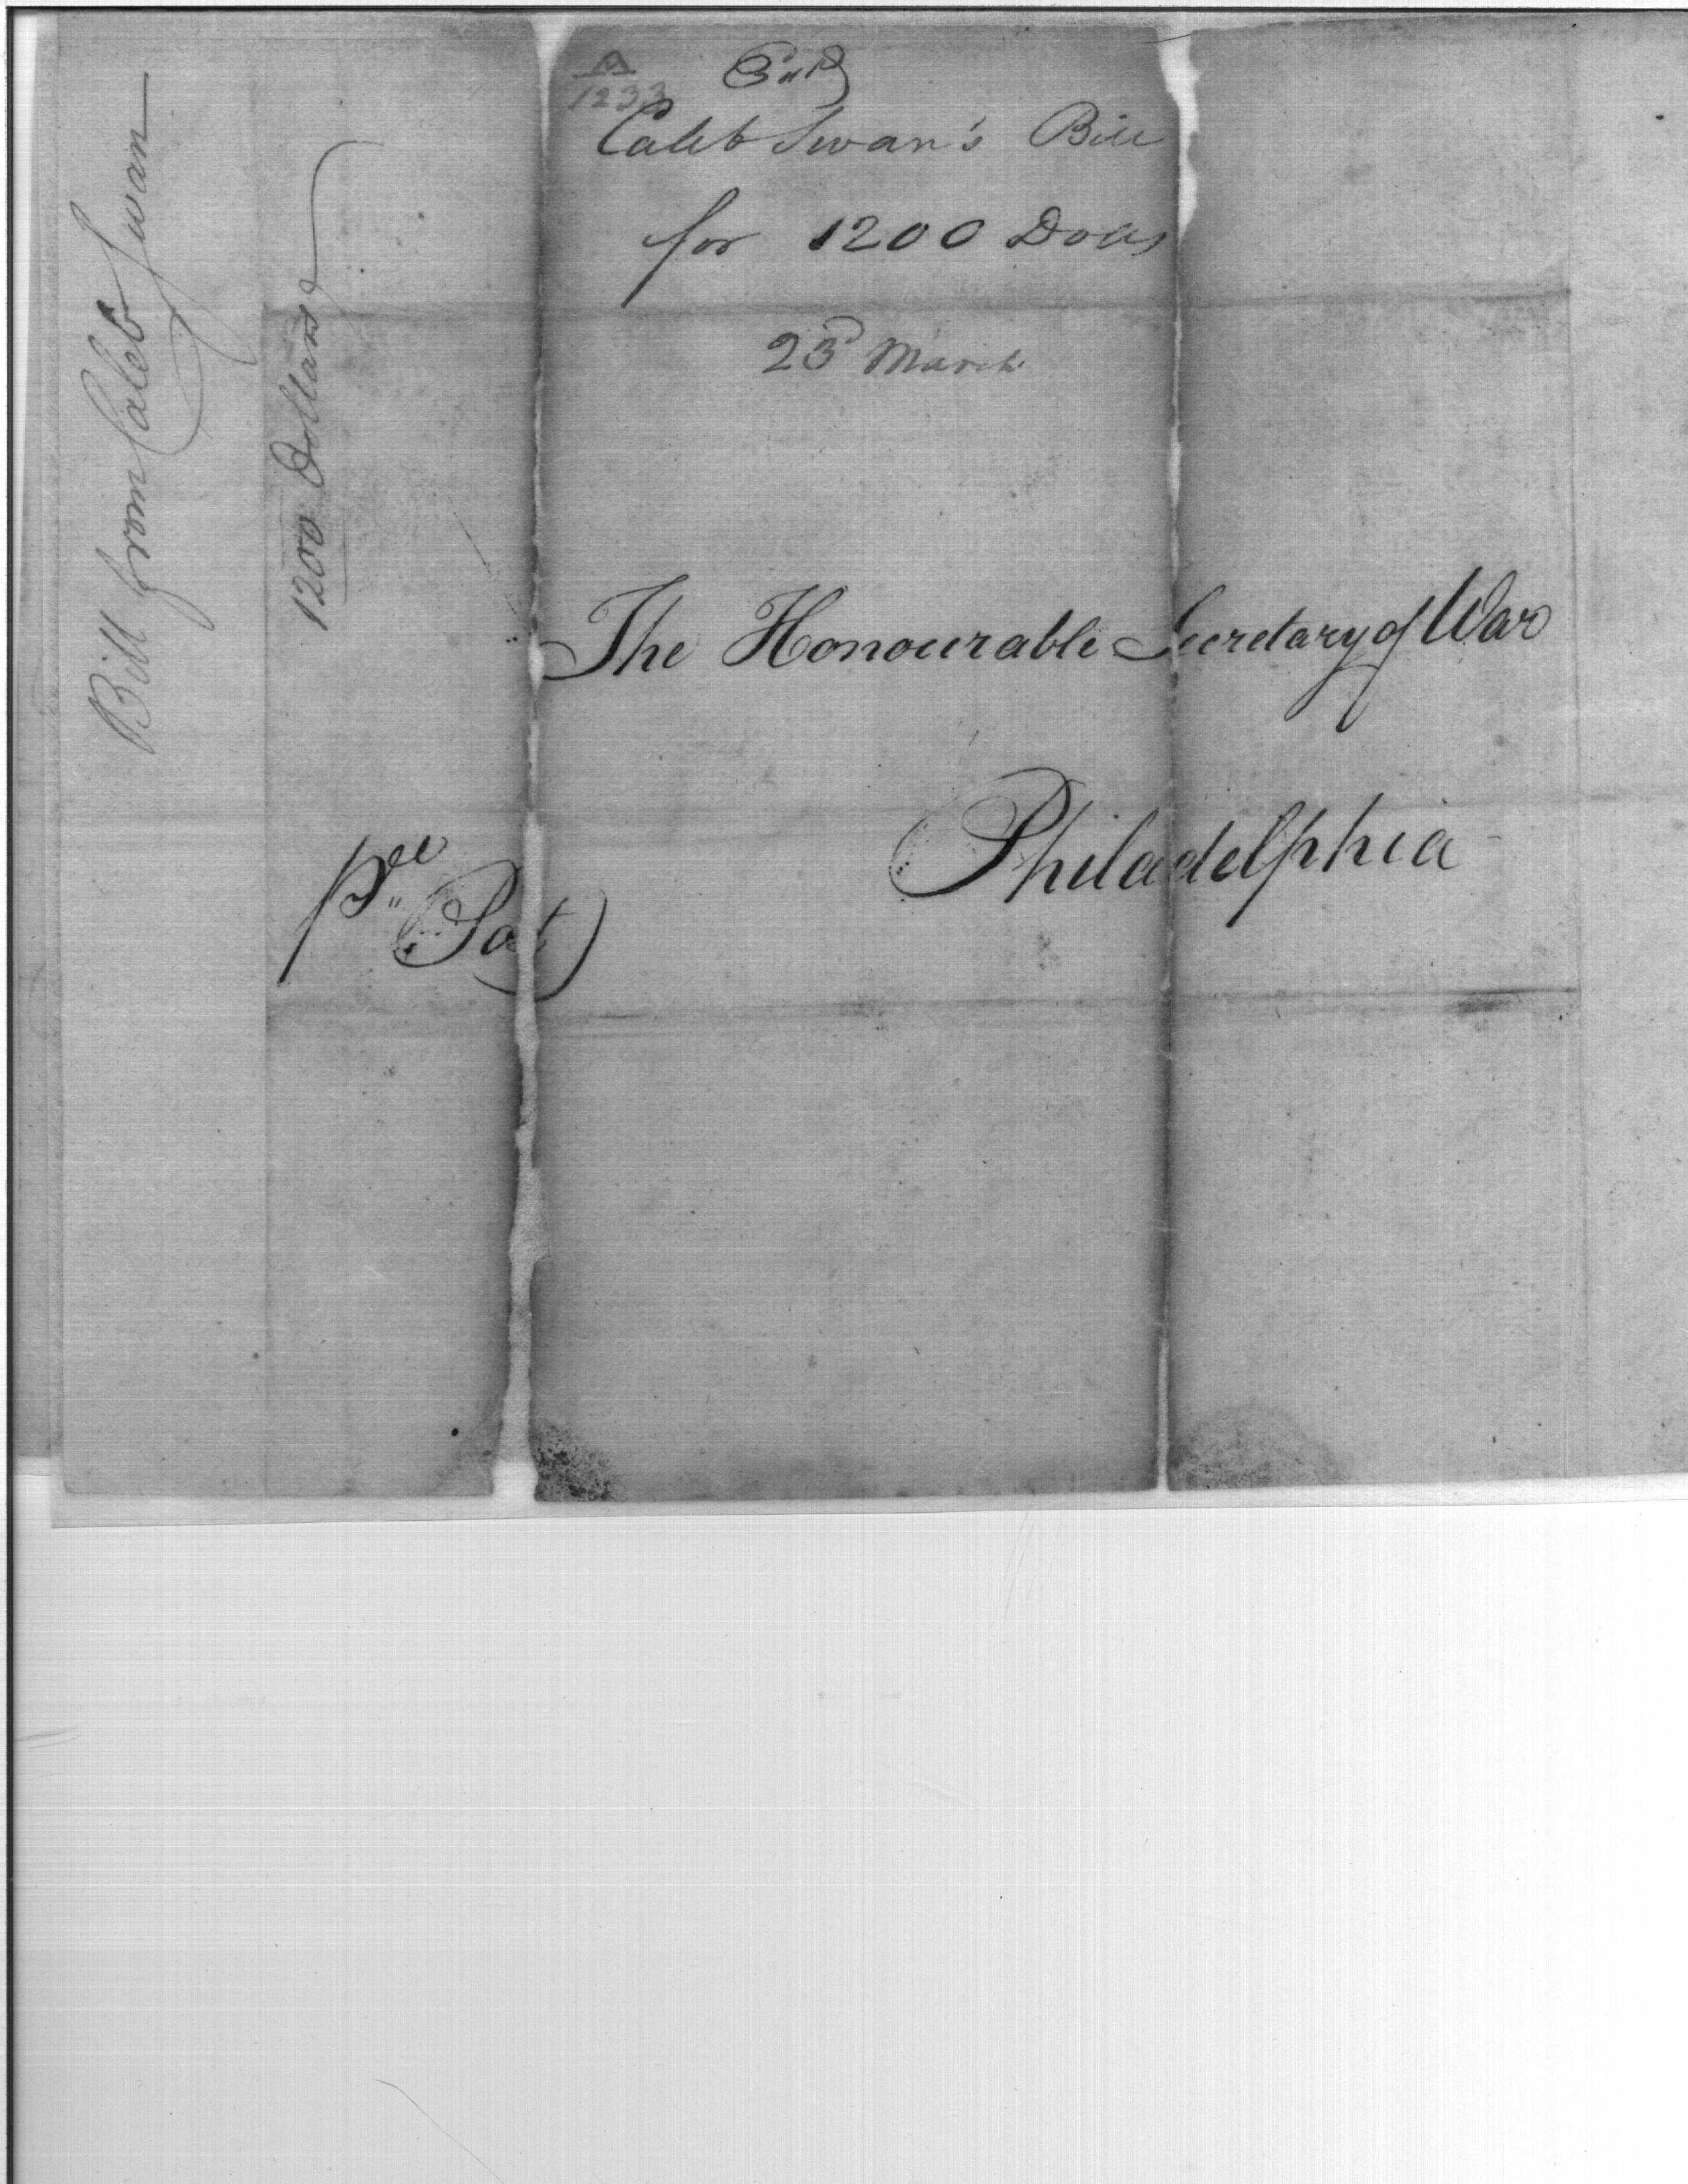 Bill from Caleb Swan
1200 Dollars
1233
Caleb Swan's Bill
for 1200 Dolls
23d March
The Honourable Secretary of War
Philadelphia
pr Post